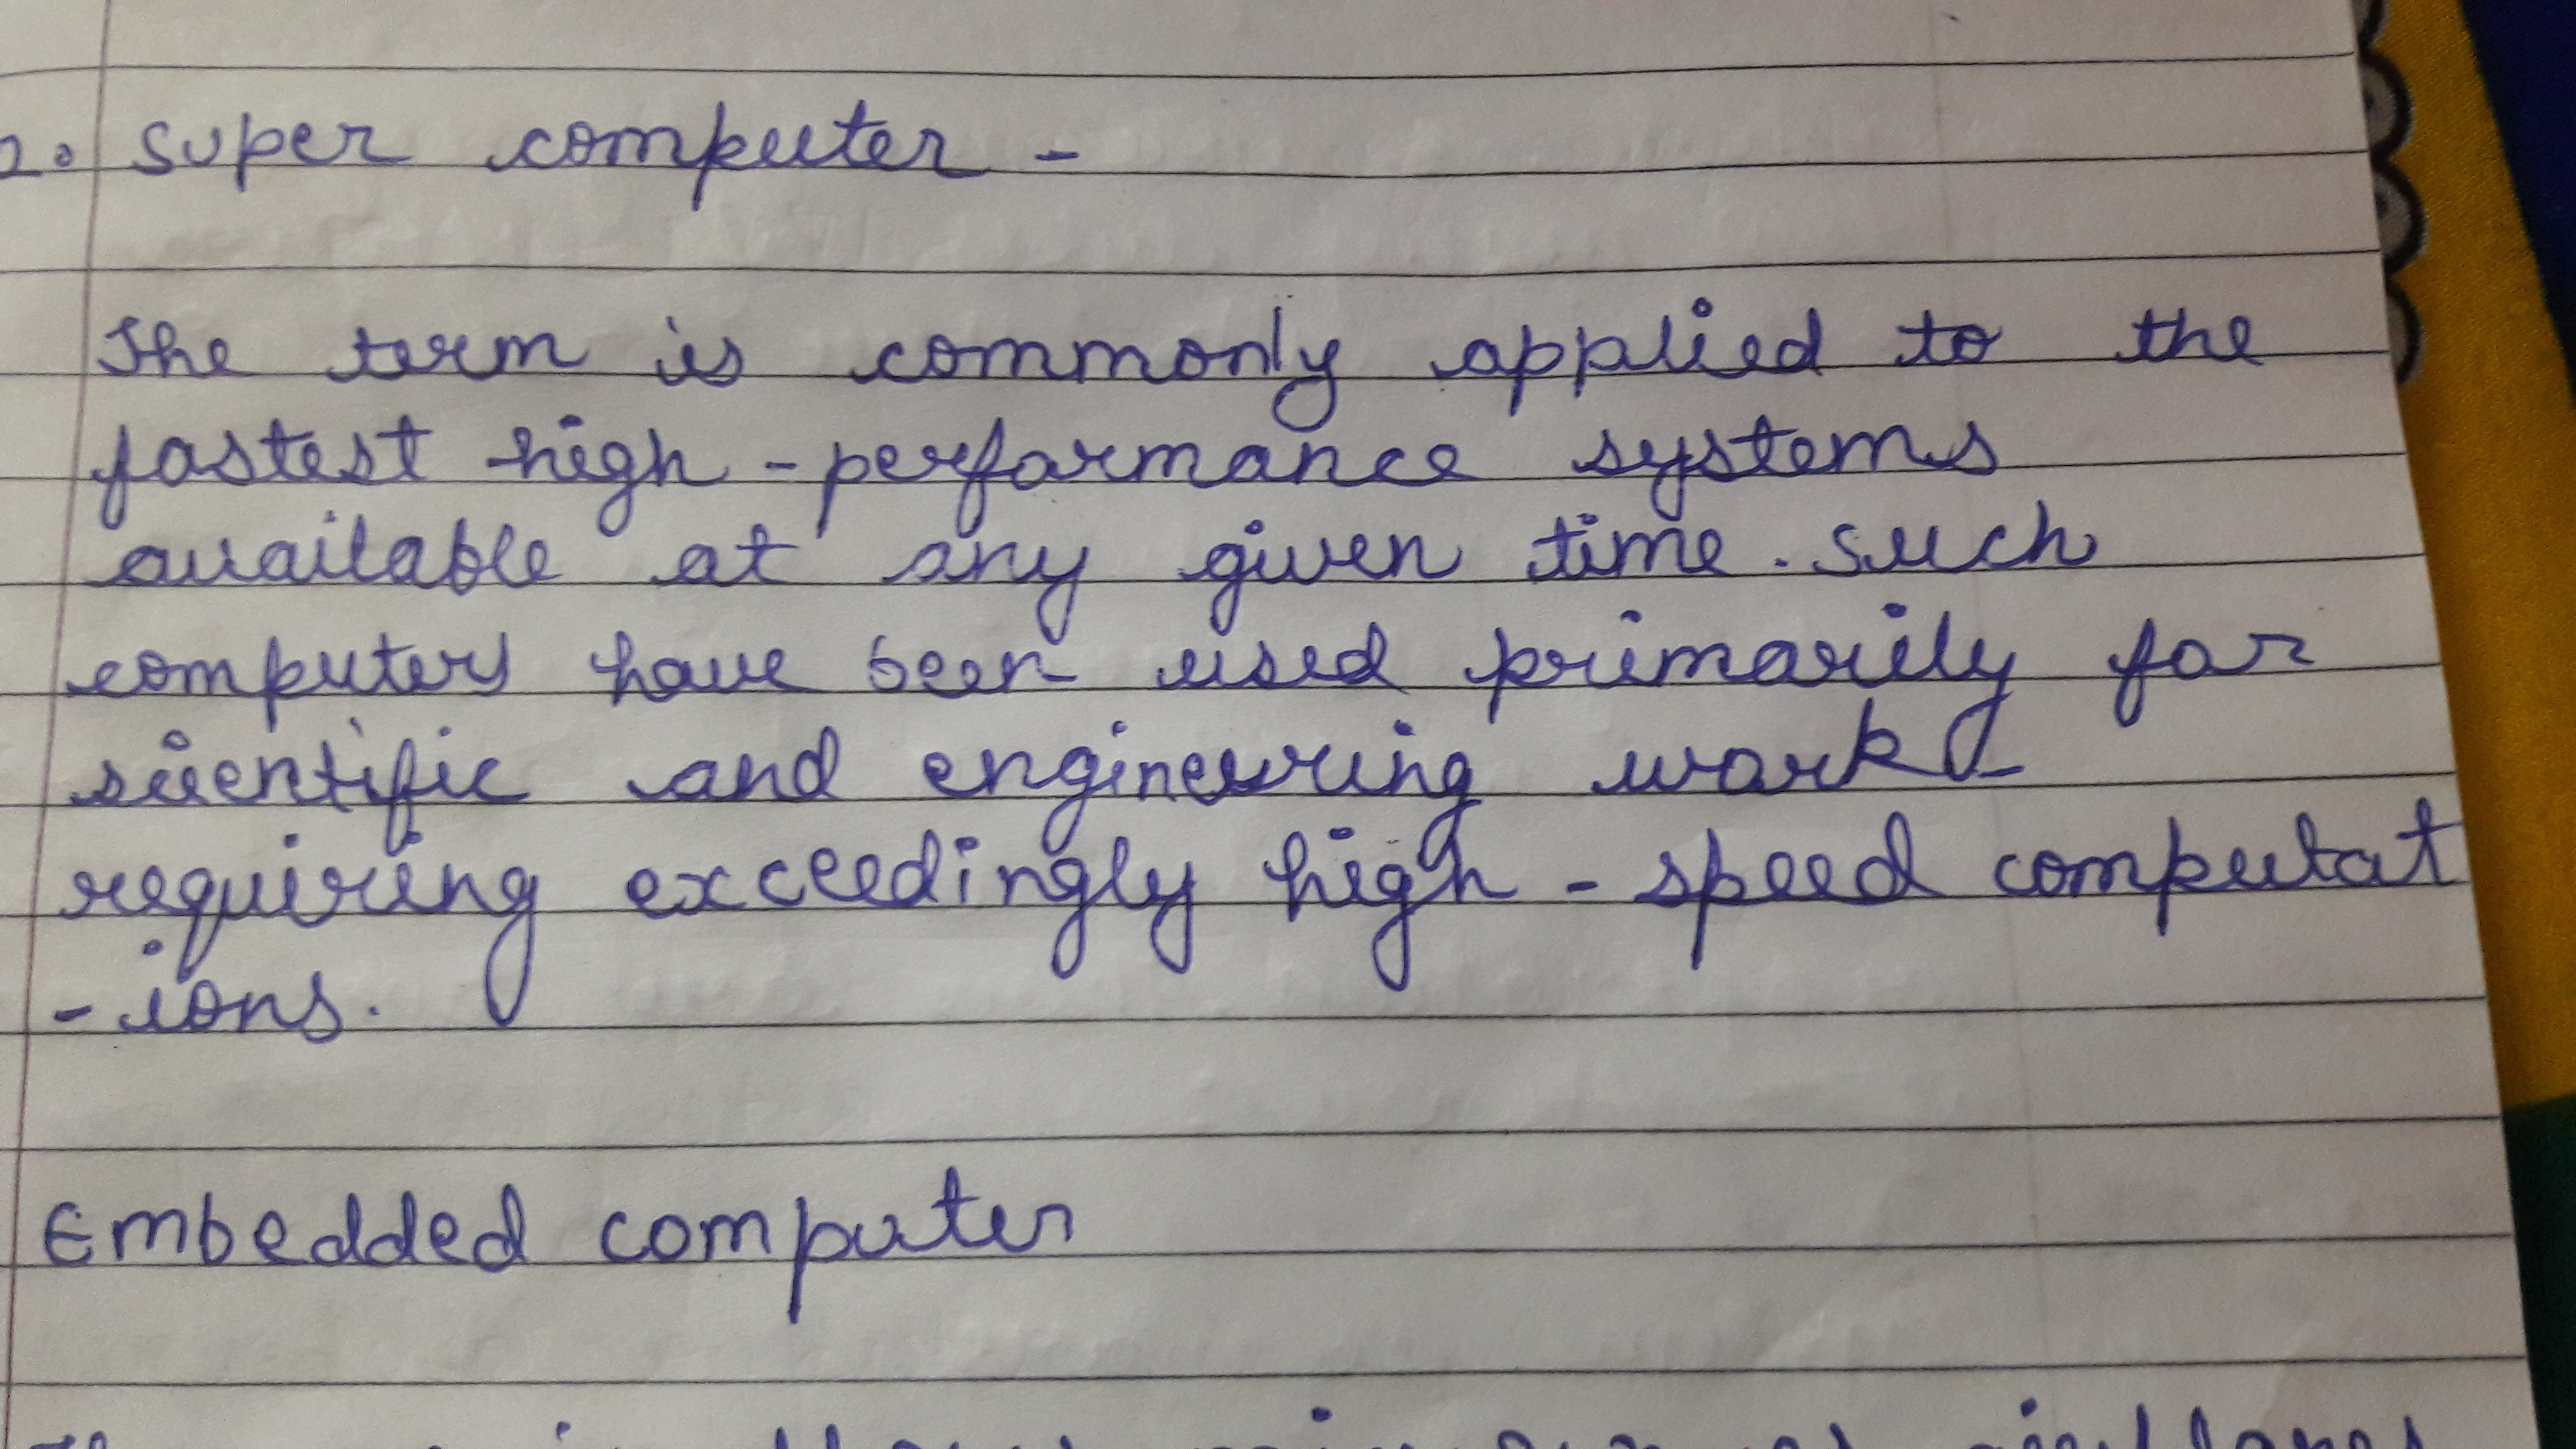 2. super computer -
The term is commonly applied to the
fastest high - performance systems
available at any given time. Such
computers have been used primarily for
scientific and engineering work
requiring exceedingly high - speed computat
- ions.
Embedded computer